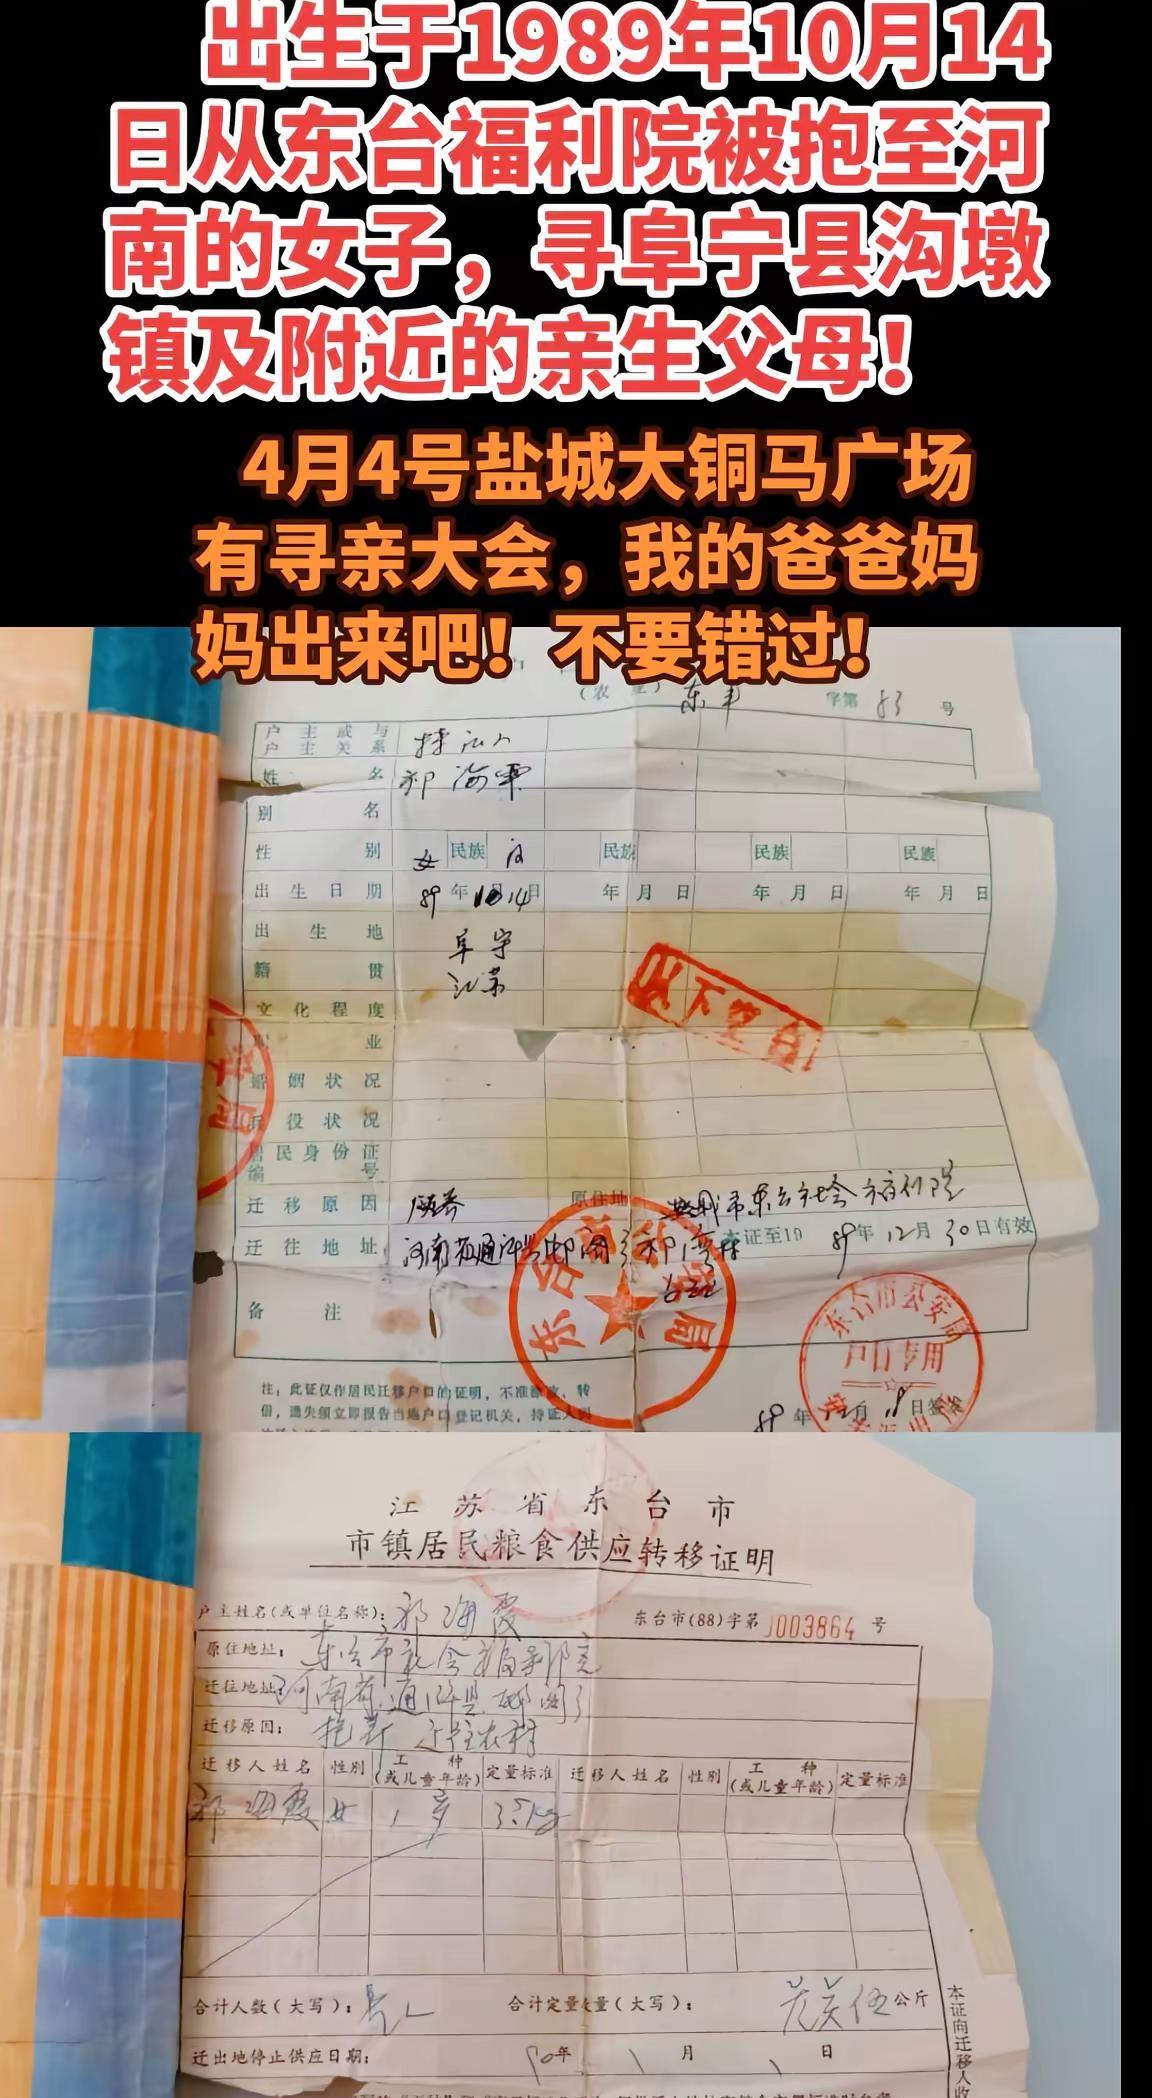 出生于1989年10月14
日从东台福利院被抱至河
南的女子，寻阜宁县沟墩
镇及附近的亲生父母！
4月4号盐城大铜马广场
有寻亲大会，我的爸爸妈
妈出来吧！不要错过！
字第 83 号
户主或与
户主关系 持证人
姓名 祁海霞
别名
性别 女 民族 汉 民族 民族 民族
出生日期 89年10月14日 年月日 年月日 年月日
出生地 阜宁
籍贯 江苏
文化程度
以下空白
职业
婚姻状况
兵役状况
居民身份证
编号
迁移原因 领养 原住地 盐城市东台社会福利院
迁往地址 河南省通许县邸阁乡祁湾村 本证至1989年12月30日有效
备注
东台市公安局
户口专用
注：此证仅作居民迁移户口的证明，不准涂改、转
借，遗失须立即报告当地户口登记机关，持证人到
89年12月18日签发
江苏省东台市
市镇居民粮食供应转移证明
户主姓名(或单位名称)：祁海霞 东台市(88)字第J003864号
原住地址：东台市社会福利院
迁往地址：河南省通许县邸阁乡
迁移原因：抱养 迁往农村
迁移人姓名 性别 工种(或儿童年龄) 定量标准 迁移人姓名 性别 工种(或儿童年龄) 定量标准
祁海霞 女 1岁 3.5kg
合计人数(大写)：壹人 合计定量数量(大写)： 公斤
迁出地停止供应日期： 90年1月1日
本证向迁移人收